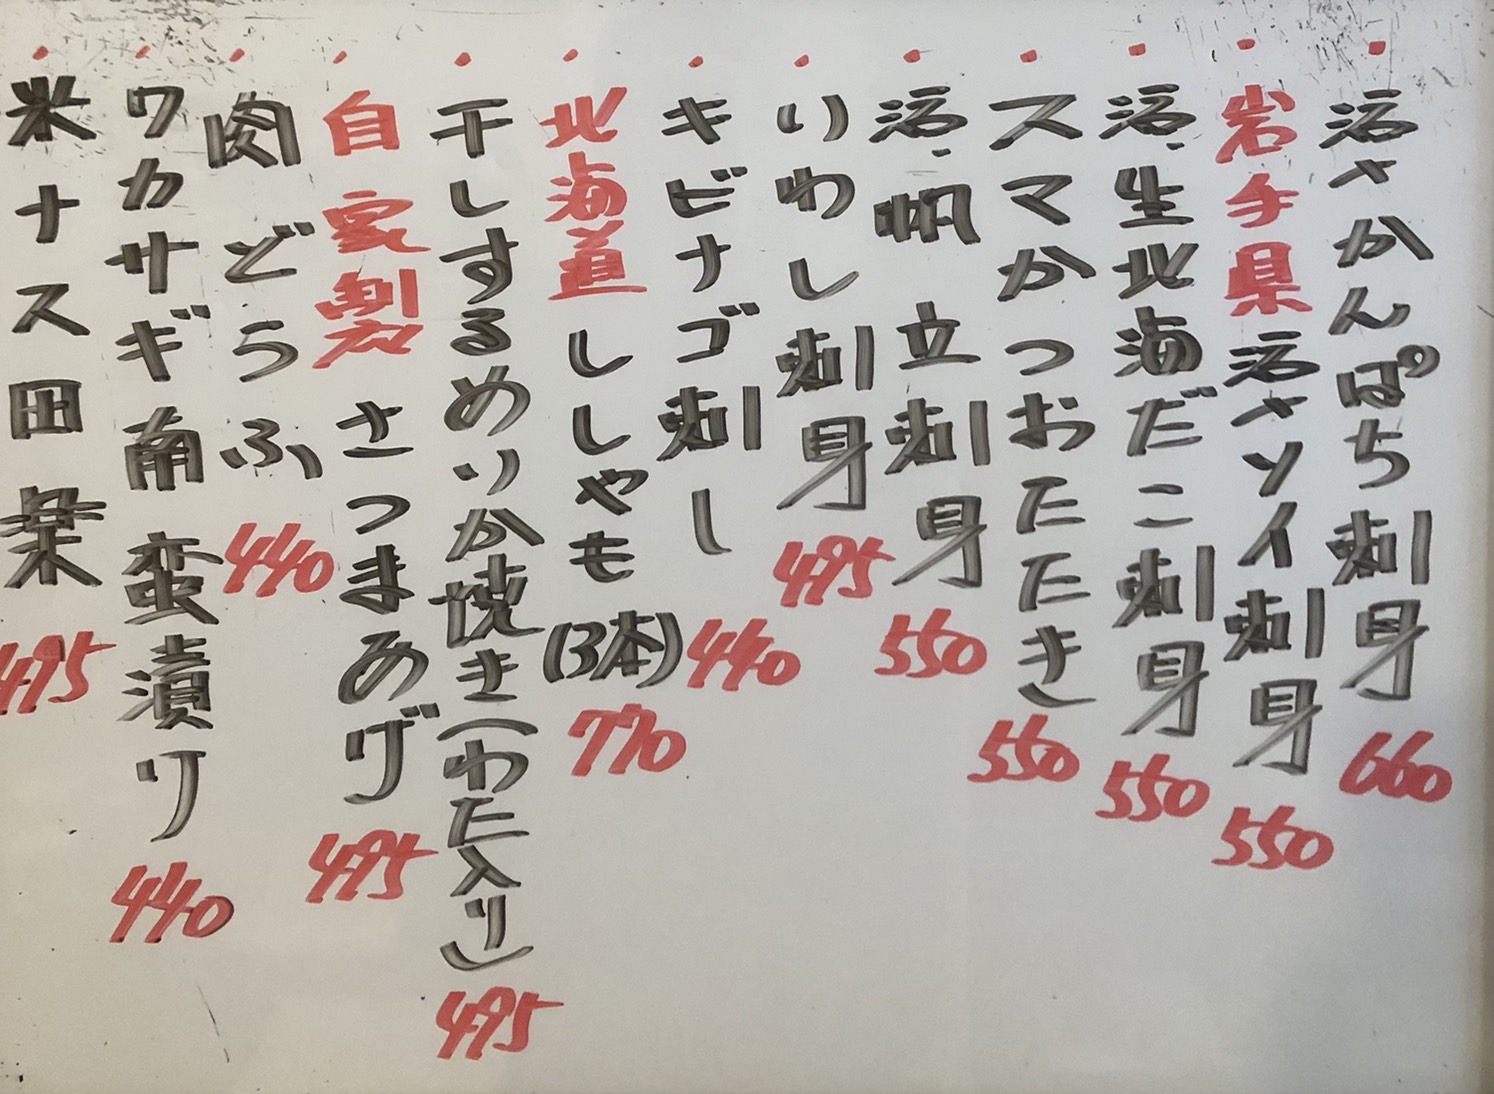 ・活〆かんぱち刺身 660
・岩手県活〆ソイ刺身 550
・活〆生北海だこ刺身 550
・スマかつおたたき 550
・活〆帆立刺身 550
・いわし刺身 495
・キビナゴ刺し 440
・北海道ししゃも(3本) 770
・干しするめいか焼き(わた入り) 495
・自家製さつまあげ 495
・肉どうふ 440
・ワカサギ南蛮漬け 440
米ナス田楽 495